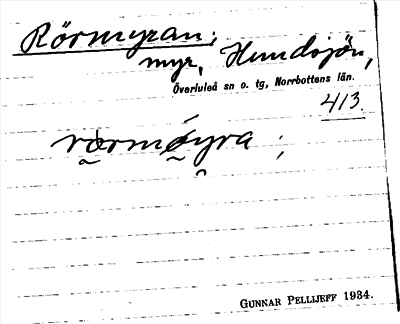 Rörmyran,
myr, Hundsjön,
Överluleå sn o. tg, Norrbottens län.
413.
rœrmøyra ;
GUNNAR PELLIJEFF 1934.